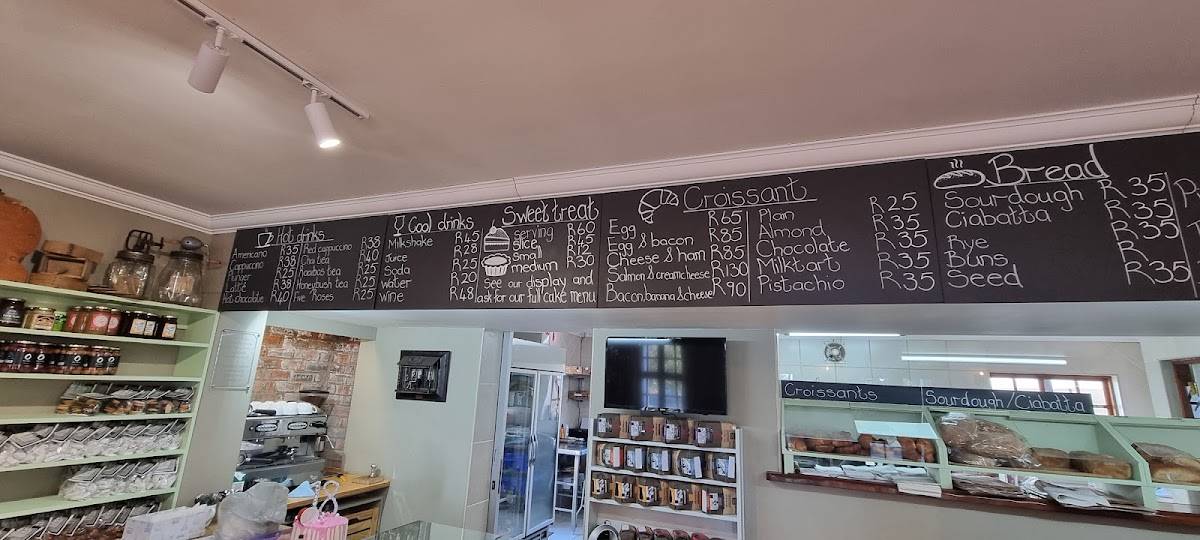 Hot drinks
Americano R35
Cappuccino R38
Plunger R25
Latte R38
Hot chocolate R40
Red cappuccino R38
Chai tea R40
Rooibos tea R25
Honeybush tea R25
Five Roses R25
Cool drinks
Milkshake R45
Juice R25
Soda R25
water R20
wine R48
Sweet treat
serving R60
slice
small
medium R30
see our display and
ask for our full cake menu
Croissant
Egg R65
Egg & bacon R85
Cheese & ham R85
Salmon & creamcheese R130
Bacon, banana & cheese R90
Plain R25
Almond R35
Chocolate R35
Milktart R35
Pistachio R35
Bread
Sourdough R35
Ciabatta R35
Rye R35
Buns
Seed R35
Croissants
Sourdough/Ciabatta